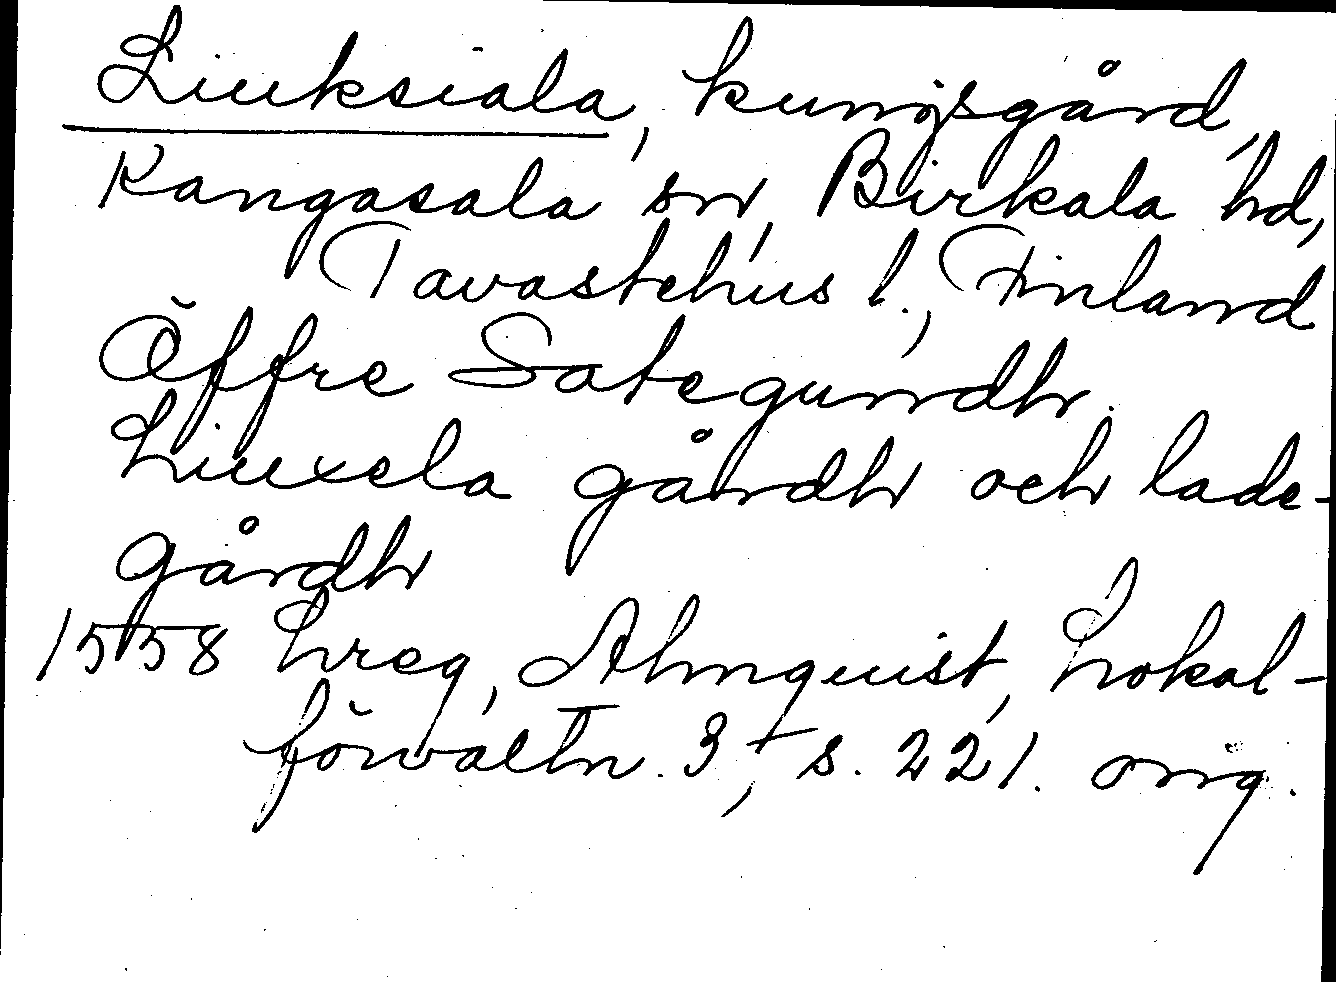 Liuksiala, kungsgård,
Kangasala sn, Birkala hd,
Tavastehus l., Finland
Öffre Sategundh.
Liuxela gårdh och lade-
gårdh
1558 Lreg, Almquist, Lokal-
förvaltn. 3, s. 221. orig.